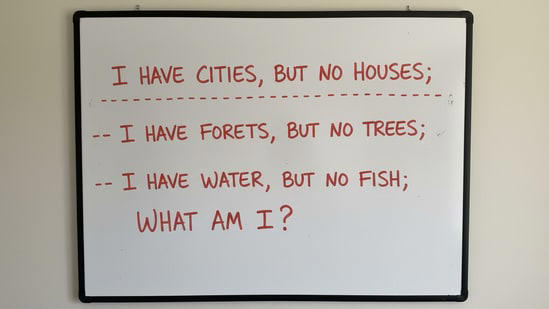 I HAVE CITIES, BUT NO HOUSES;
-- I HAVE FORETS, BUT NO TREES;
-- I HAVE WATER, BUT NO FISH;
WHAT AM I?